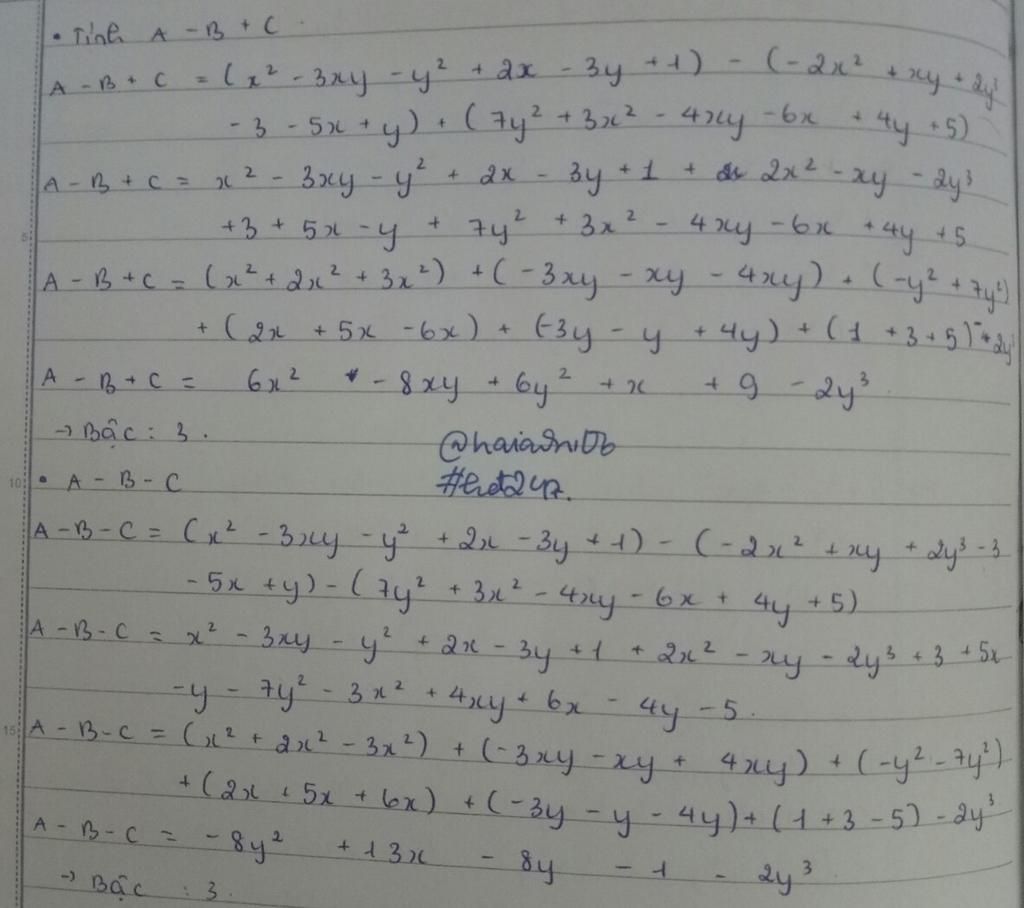 • Tính A - B + C
A - B + C = (x² - 3xy - y² + 2x - 3y + 1) - (-2x² + xy + 2y³
- 3 - 5x + y) + (7y² + 3x² - 4xy - 6x + 4y + 5)
A - B + C = x² - 3xy - y² + 2x - 3y + 1 + 2x² - xy - 2y³
+3 + 5x - y + 7y² + 3x² - 4xy - 6x + 4y + 5
5
A - B + C = (x² + 2x² + 3x²) + (-3xy - xy - 4xy) + (-y² + 7y²)
+ (2x + 5x - 6x) + (-3y - y + 4y) + (1 + 3 + 5) - 2y³
A - B + C = 6x² - 8xy + 6y² + x + 9 - 2y³
→ Bậc : 3.
#hdt247.
10
• A - B - C
A - B - C = (x² - 3xy - y² + 2x - 3y + 1) - (-2x² + xy + 2y³ - 3
- 5x + y) - (7y² + 3x² - 4xy - 6x + 4y + 5)
A - B - C = x² - 3xy - y² + 2x - 3y + 1 + 2x² - xy - 2y³ + 3 + 5x
-y - 7y² - 3x² + 4xy + 6x - 4y - 5.
15
A - B - C = (x² + 2x² - 3x²) + (-3xy - xy + 4xy) + (-y² - 7y²)
+ (2x + 5x + 6x) + (-3y - y - 4y) + (1 + 3 - 5) - 2y³
A - B - C = -8y² + 13x - 8y - 1 - 2y³
→ Bậc : 3.